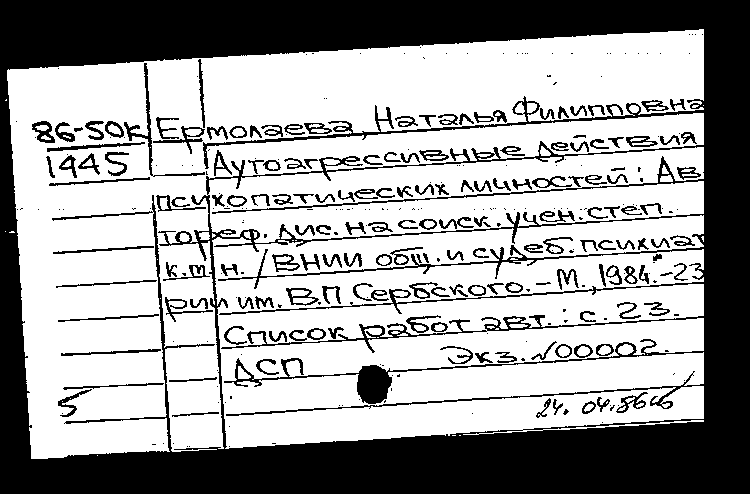 86-50К Ермолаева, Наталья Филипповна
1445 Аутоагрессивные действия
психопатических личностей: Ав
тореф. дис. на соиск. учен. степ.
к.м.н. / ВНИИ общ. и судеб. психиат
рии им. В.П. Сербского. – М., 1984. – 23
Список работ авт.: с. 23.
ДСП Экз. №00002.
5
24.04.86